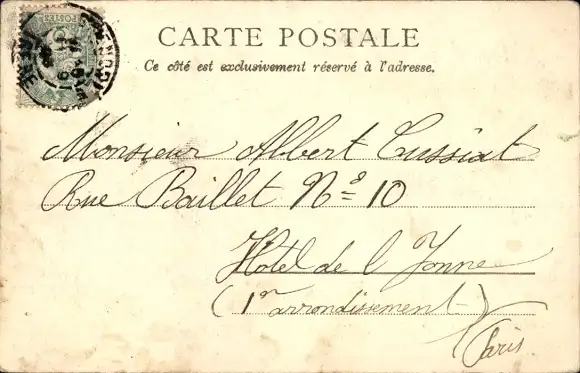 CARTE POSTALE
Ce côté est exclusivement réservé à l'adresse.
POSTES
Monsieur Albert Cussiat
Rue Baillet No 10
Hôtel de l Yonne
(1er arrondissement)
Paris